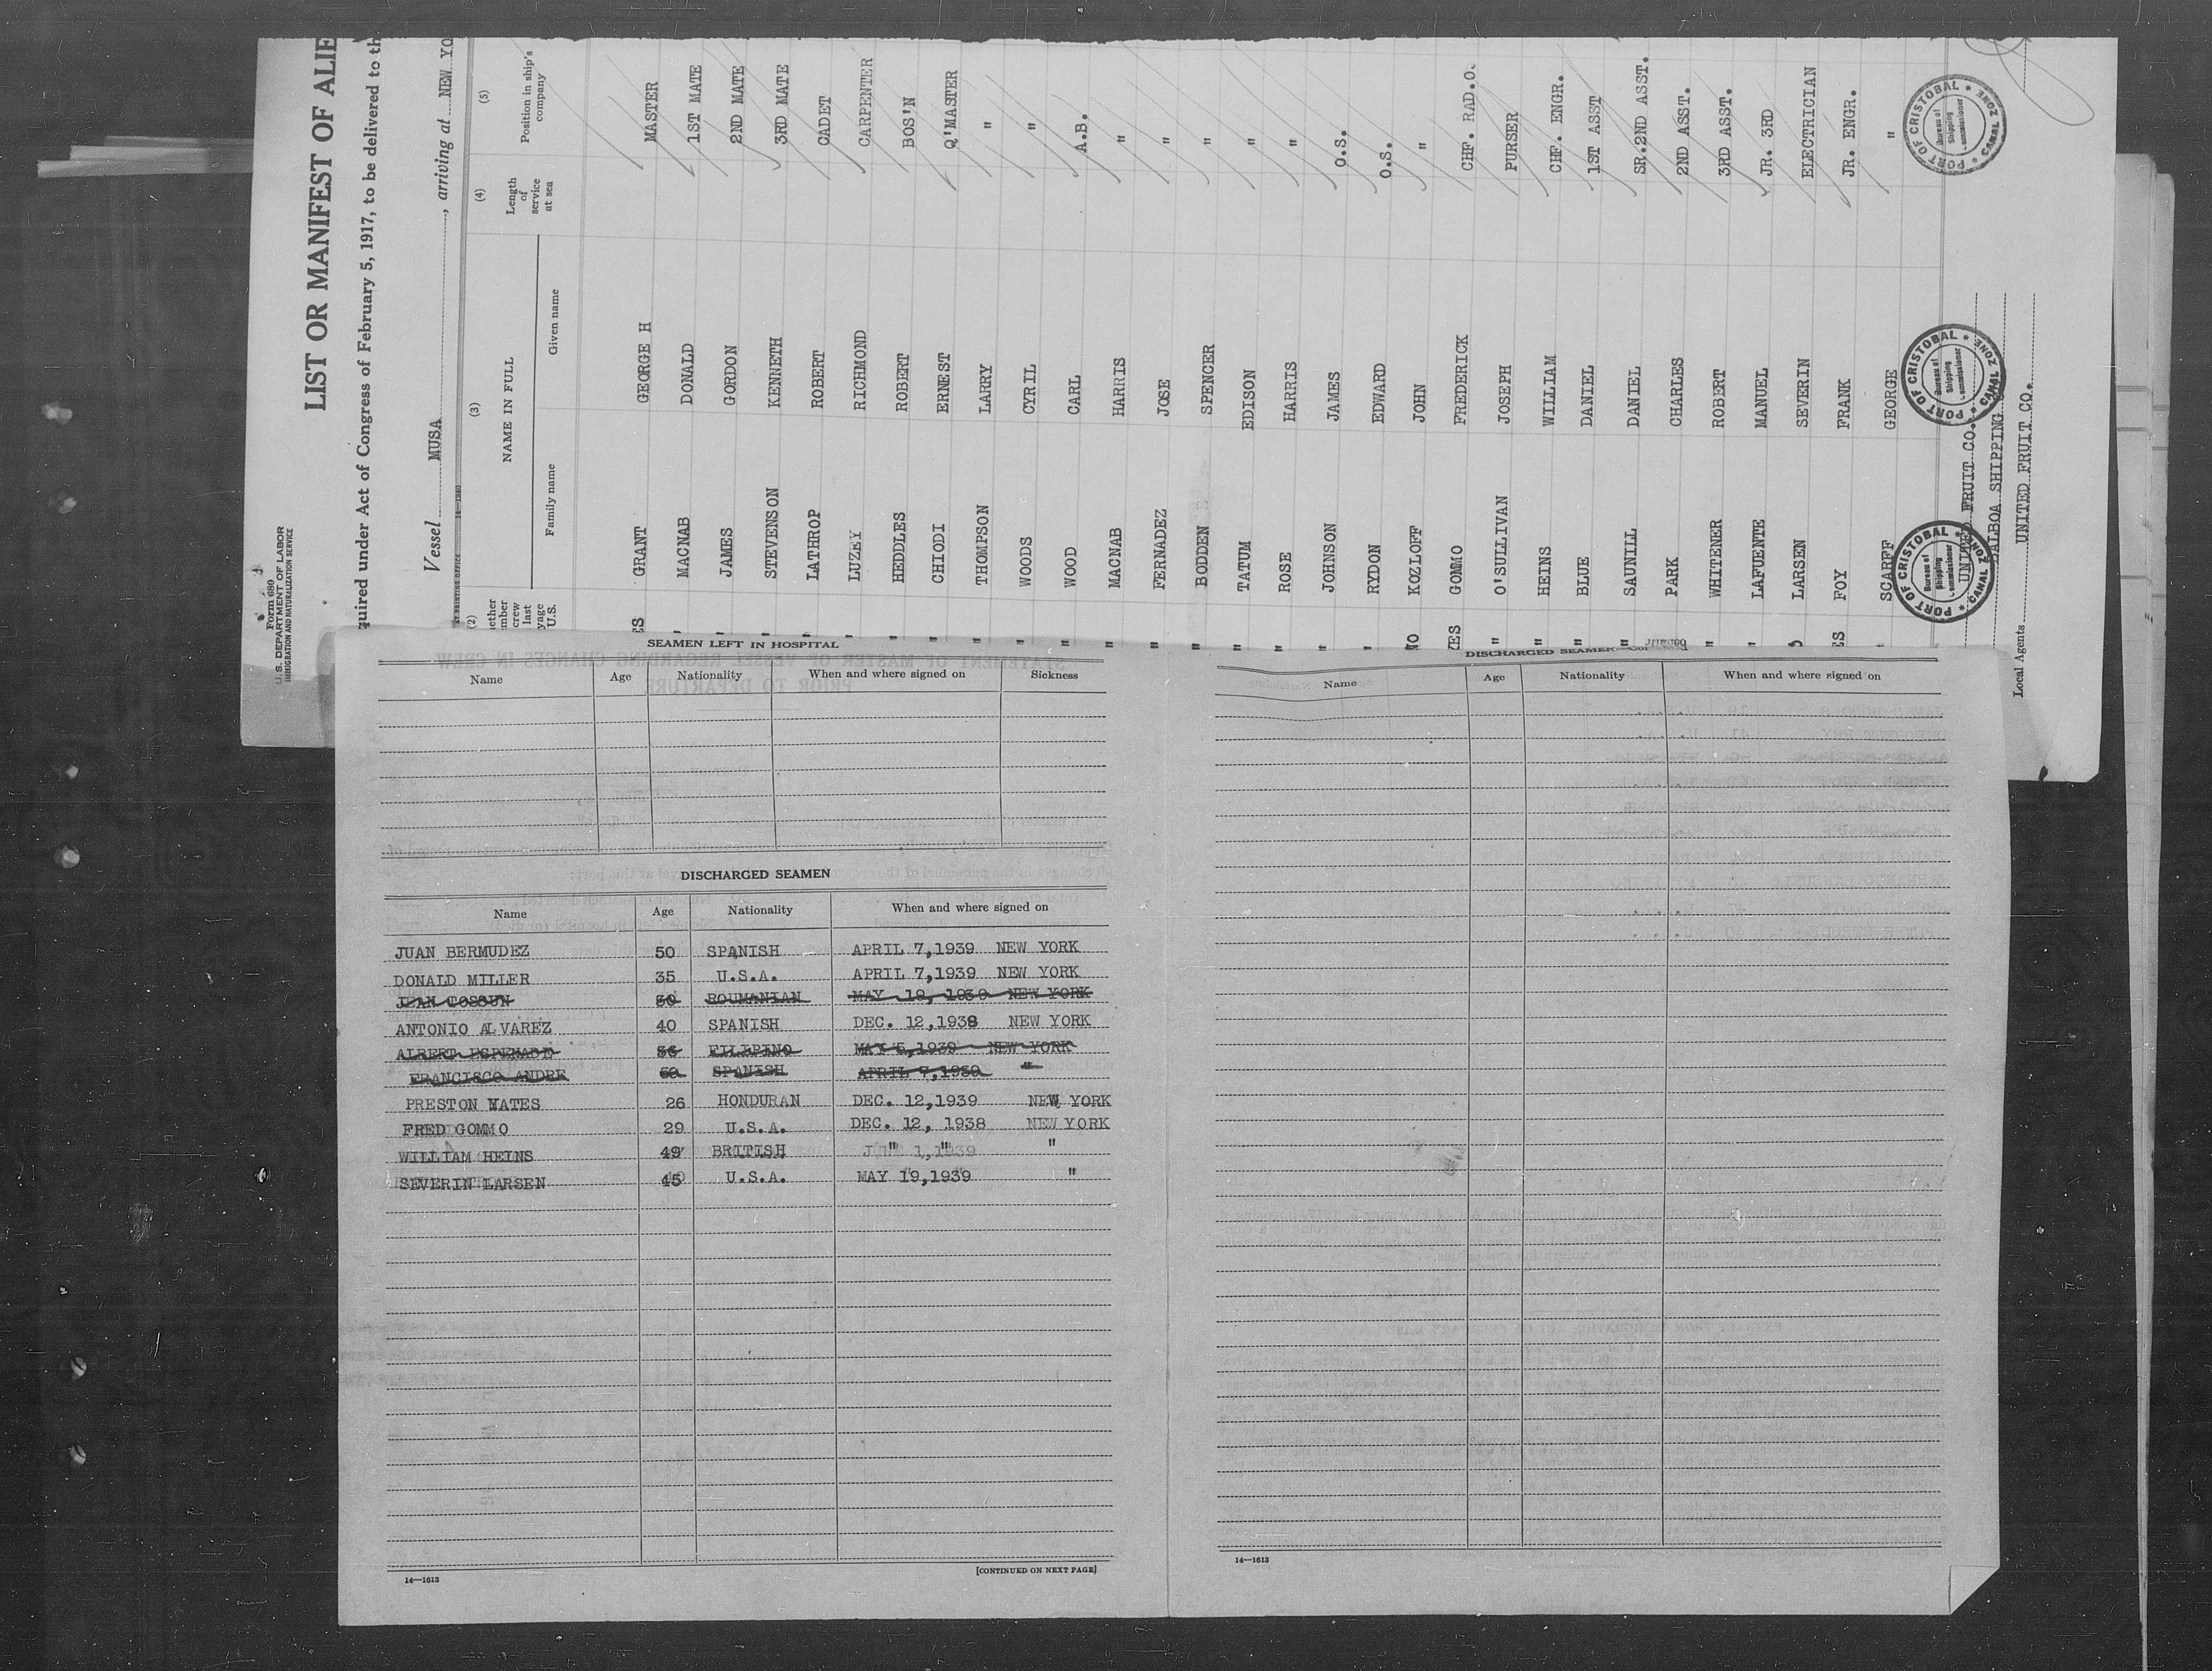 Form 680
U.S. DEPARTMENT OF LABOR
IMMIGRATION AND NATURALIZATION SERVICE
LIST OR MANIFEST OF ALIE
quired under Act of Congress of February 5, 1917, to be delivered to th
Vessel MUSA, arriving at NEW YO
(2) (3) (4) (5)
NAME IN FULL
Family name Given name Length of service at sea Position in ship's company
GRANT GEORGE H MASTER
MACNAB DONALD 1ST MATE
JAMES GORDON 2ND MATE
STEVENSON KENNETH 3RD MATE
LATHROP ROBERT CADET
LUZEY RICHMOND CARPENTER
HEDDLES ROBERT BOS'N
CHIODI ERNEST Q'MASTER
THOMPSON LARRY "
WOODS CYRIL "
WOOD CARL A.B.
MACNAB HARRIS "
FERNADEZ JOSE "
BODDEN SPENCER "
TATUM EDISON "
ROSE HARRIS "
JOHNSON JAMES O.S.
RYDON EDWARD O.S.
KOZLOFF JOHN "
GOMMO FREDERICK CHF. RAD.O.
O'SULLIVAN JOSEPH PURSER
HEINS WILLIAM CHF. ENGR.
BLUE DANIEL 1ST ASST
SAUNILL DANIEL SR.2ND ASST.
PARK CHARLES 2ND ASST.
WHITENER ROBERT 3RD ASST.
LAFUENTE MANUEL JR. 3RD
LARSEN SEVERIN ELECTRICIAN
FOY FRANK JR. ENGR.
SCARFF GEORGE "
PORT OF CRISTOBAL * CANAL ZONE * Bureau of Shipping Commissioner
PORT OF CRISTOBAL * CANAL ZONE * Bureau of Shipping Commissioner
PORT OF CRISTOBAL * CANAL ZONE * Bureau of Shipping Commissioner
UNITED FRUIT CO.
BALBOA SHIPPING
Local Agents UNITED FRUIT CO.
SEAMEN LEFT IN HOSPITAL
Name Age Nationality When and where signed on Sickness
DISCHARGED SEAMEN
Name Age Nationality When and where signed on
JUAN BERMUDEZ 50 SPANISH APRIL 7,1939 NEW YORK
DONALD MILLER 35 U.S.A. APRIL 7,1939 NEW YORK
ROUMANIAN MAY 19, 1939 NEW YORK
ANTONIO ALVAREZ 40 SPANISH DEC. 12,1938 NEW YORK
ALBERT 36 FILIPINO MAY 5,1939 NEW YORK
FRANCISCO ANDRE SPANISH APRIL 7,1939 "
PRESTON 26 HONDURAN DEC. 12,1939 NEW YORK
FRED GOMMO 29 U.S.A. DEC. 12, 1938 NEW YORK
WILLIAM HEINS 49 BRITISH " " "
SEVERIN LARSEN 45 U.S.A. MAY 19,1939 "
14—1613
[CONTINUED ON NEXT PAGE]
DISCHARGED SEAMEN
Name Age Nationality When and where signed on
14—1613